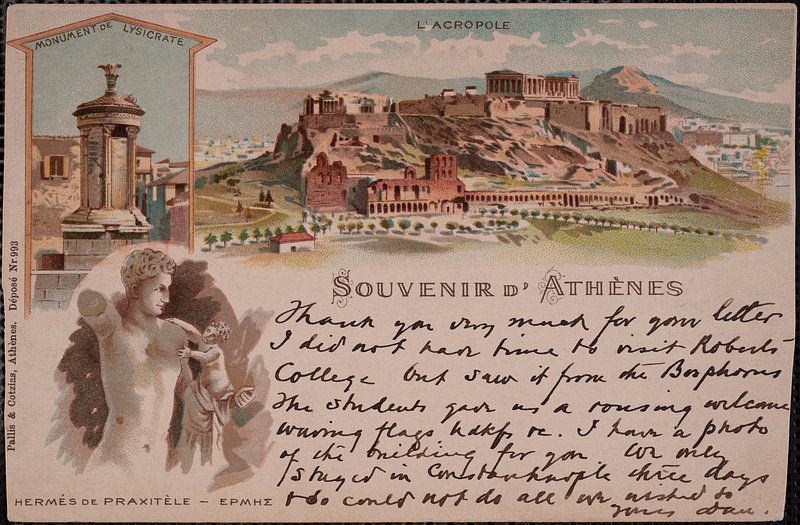 MONUMENT DE LYSICRATE
L'ACROPOLE
SOUVENIR D'ATHÈNES
Thank you very much for your letter
I did not have time to visit Roberts
College but saw it from the Bosphorus
The students gave us a rousing welcome
waving flags hdkfs &c. I have a photo
of the building for you We only
stayed in Constantinople three days
& so could not do all we wished to
Yours Dau.
Pallis & Cotzias, Athènes. Déposé Nr. 993
HERMÉS DE PRAXITÈLE – ΕΡΜΗΣ